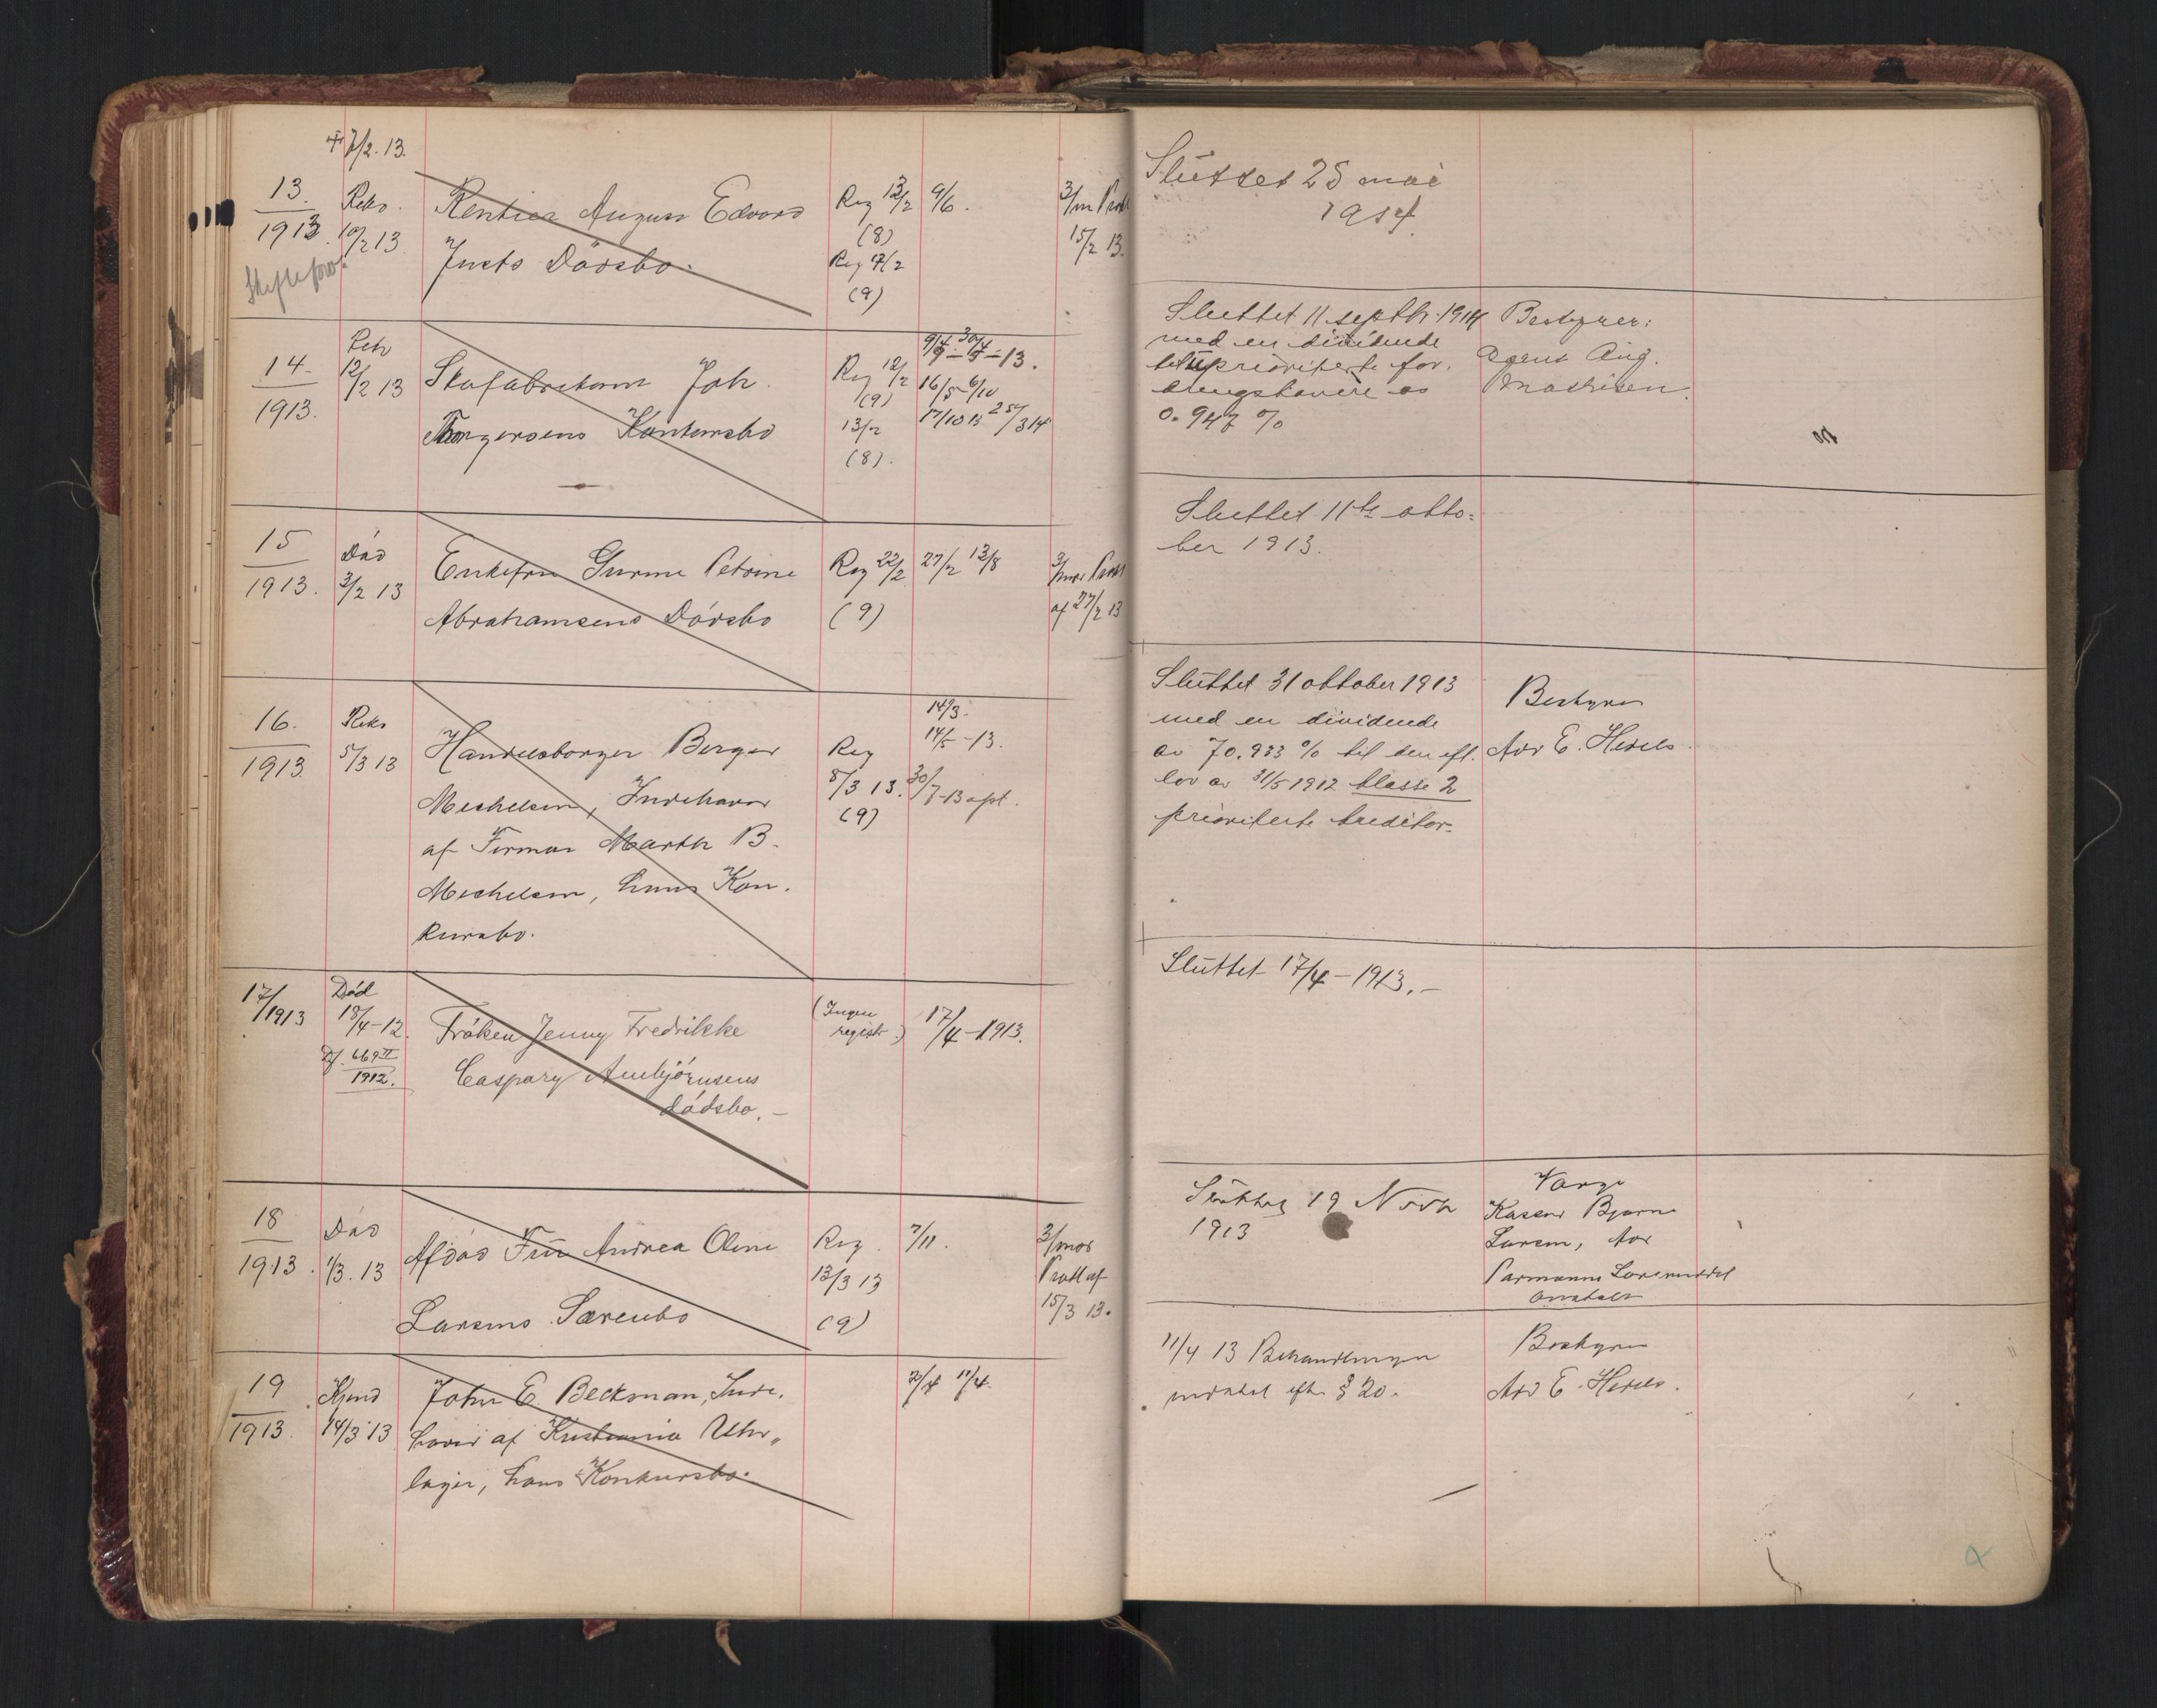 † 7/2. 13.
13.
1913.
Reko.
10/2 13
Rentier August Edvard
Juels Dödsbo.
Reg 13/2
(8)
Reg 17/2
(9)
9/6.
3/m Prokl
15/2 13.
Sluttet 25 mai
1914.
14.
1913.
Rek
12/2 13
Skofabrikant Joh.
Thorgersens Konkursbo
Reg 12/2
(9)
13/2
(8).
9/4 - 30/4 - 13.
16/5 - 6/10
17/10 13 25/3 14
Sluttet 11 septbr. 1914
med en dividende
til uprioriterte for-
dringshavere av
0.947 %
Bestyrer:
Agent Aug.
Mathisen.
15
1913.
Död
3/2 13
Enkefru Gurine Petrine
Abrahamsens Dödsbo
Reg 22/2
(9)
27/2 13/8
3/mds Prokl
af 27/2 13
Sluttet 11te okto-
ber 1913.
16.
1913.
Reko
5/3 13
Handelsborger Berger
Mechelsen, Indehaver
af Firmaet Marth B.
Mechelsen, hans Kon-
kursbo.
Reg
8/3 13.
(9)
14/3.
14/5 - 13.
30/7 - 13 apt.
Sluttet 31 oktober 1913
med en dividende
av 70.933 % til den eft.
lov av 31/5 1912 klasse 2
prioriterte kreditor.
Bestyrer
Adv E. Hesels
17/1913
Död
18/4-12.
Df. 669 II
1912.
Fröken Jenny Fredrikke
Caspary Ambjörnsens
dödsbo. -
(Ingen
registr.)
17/4 - 1913.
Sluttet 17/4 - 1913. -
18
1913.
Död
1/3. 13
Afdöd Frü Andrea Oline
Larsens Særeubo
Reg.
13/3 13
(9)
7/11.
3/mds
Prokl af
15/3 13.
Sluttet 19 Novbr
1913
Verge
Kaserer Bjarne
Larsen, Adr
Parmanns Læremiddel
anstalt
19
1913.
Kjend
14/3 13
John E. Beckman, Inde-
haver af Kristiania Uhr-
lager, hans Konkursbo.
2/4 11/4.
11/4 13 Behandlingen
indstillet efter § 20.
Bestyrer
Adv E. Hesels.